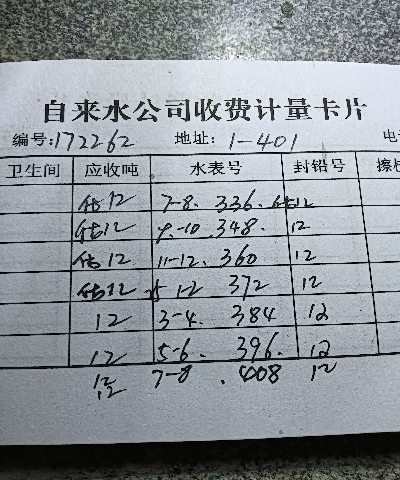 自来水公司收费计量卡片
编号:172262 地址: 1-401 电
卫生间 应收吨 水表号 封铅号 擦
估12 7-8. 336. 估12
估12 9-10. 348. 12
估12 11-12. 360 12
估12 1-2 372 12
12 3-4. 384 12
12 5-6. 396. 12
12 7-8 .408 12